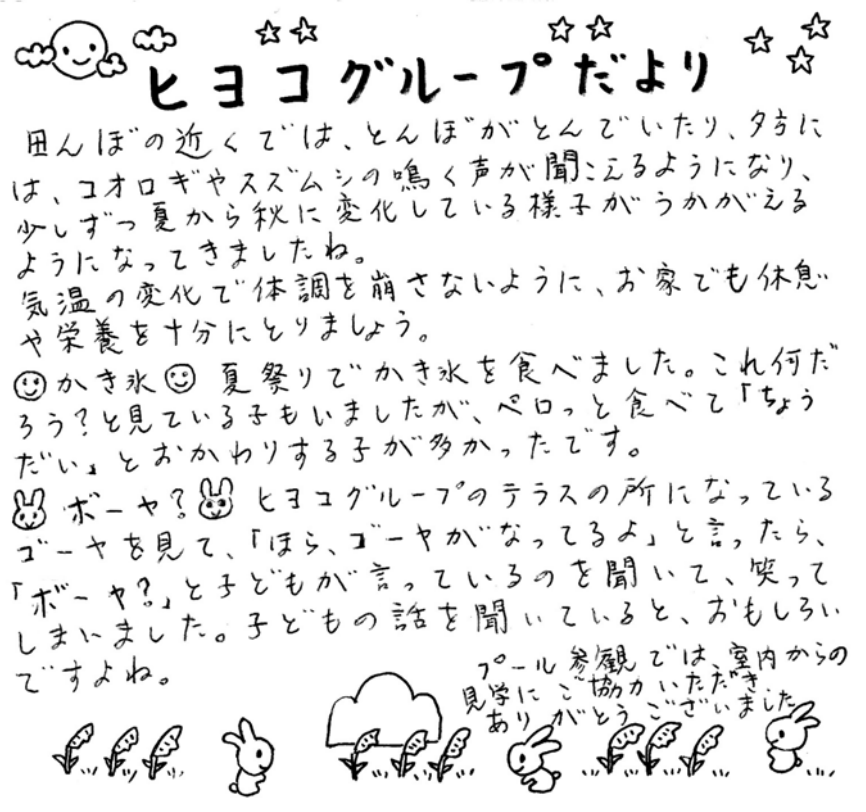 ヒヨコグループだより
田んぼの近くでは、とんぼがとんでいたり、夕方に
は、コオロギやスズムシの鳴く声が聞こえるようになり、
少しずつ夏から秋に変化している様子がうかがえる
ようになってきましたね。
気温の変化で体調を崩さないように、お家でも休息
や栄養を十分にとりましょう。
かき氷 夏祭りでかき氷を食べました。これ何だ
ろう?と見ている子もいましたが、ペロっと食べて「ちょう
だい」とおかわりする子が多かったです。
ボーヤ? ヒヨコグループのテラスの所になっている
ゴーヤを見て、「ほら、ゴーヤがなってるよ」と言ったら、
「ボーヤ?」と子どもが言っているのを聞いて、笑って
しまいました。子どもの話を聞いていると、おもしろい
ですよね。
プール参観では、室内からの
見学にご協力いただき
ありがとうございました